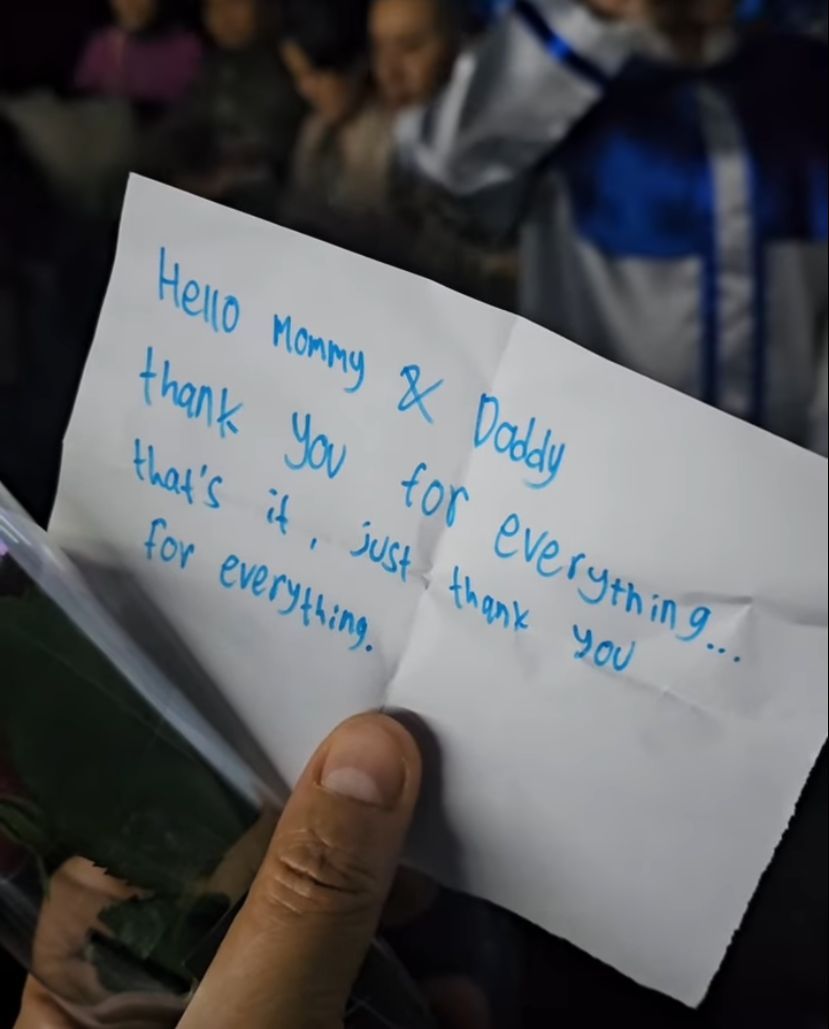 Hello Mommy & Daddy
thank you for everything...
that's it, just thank you
for everything.